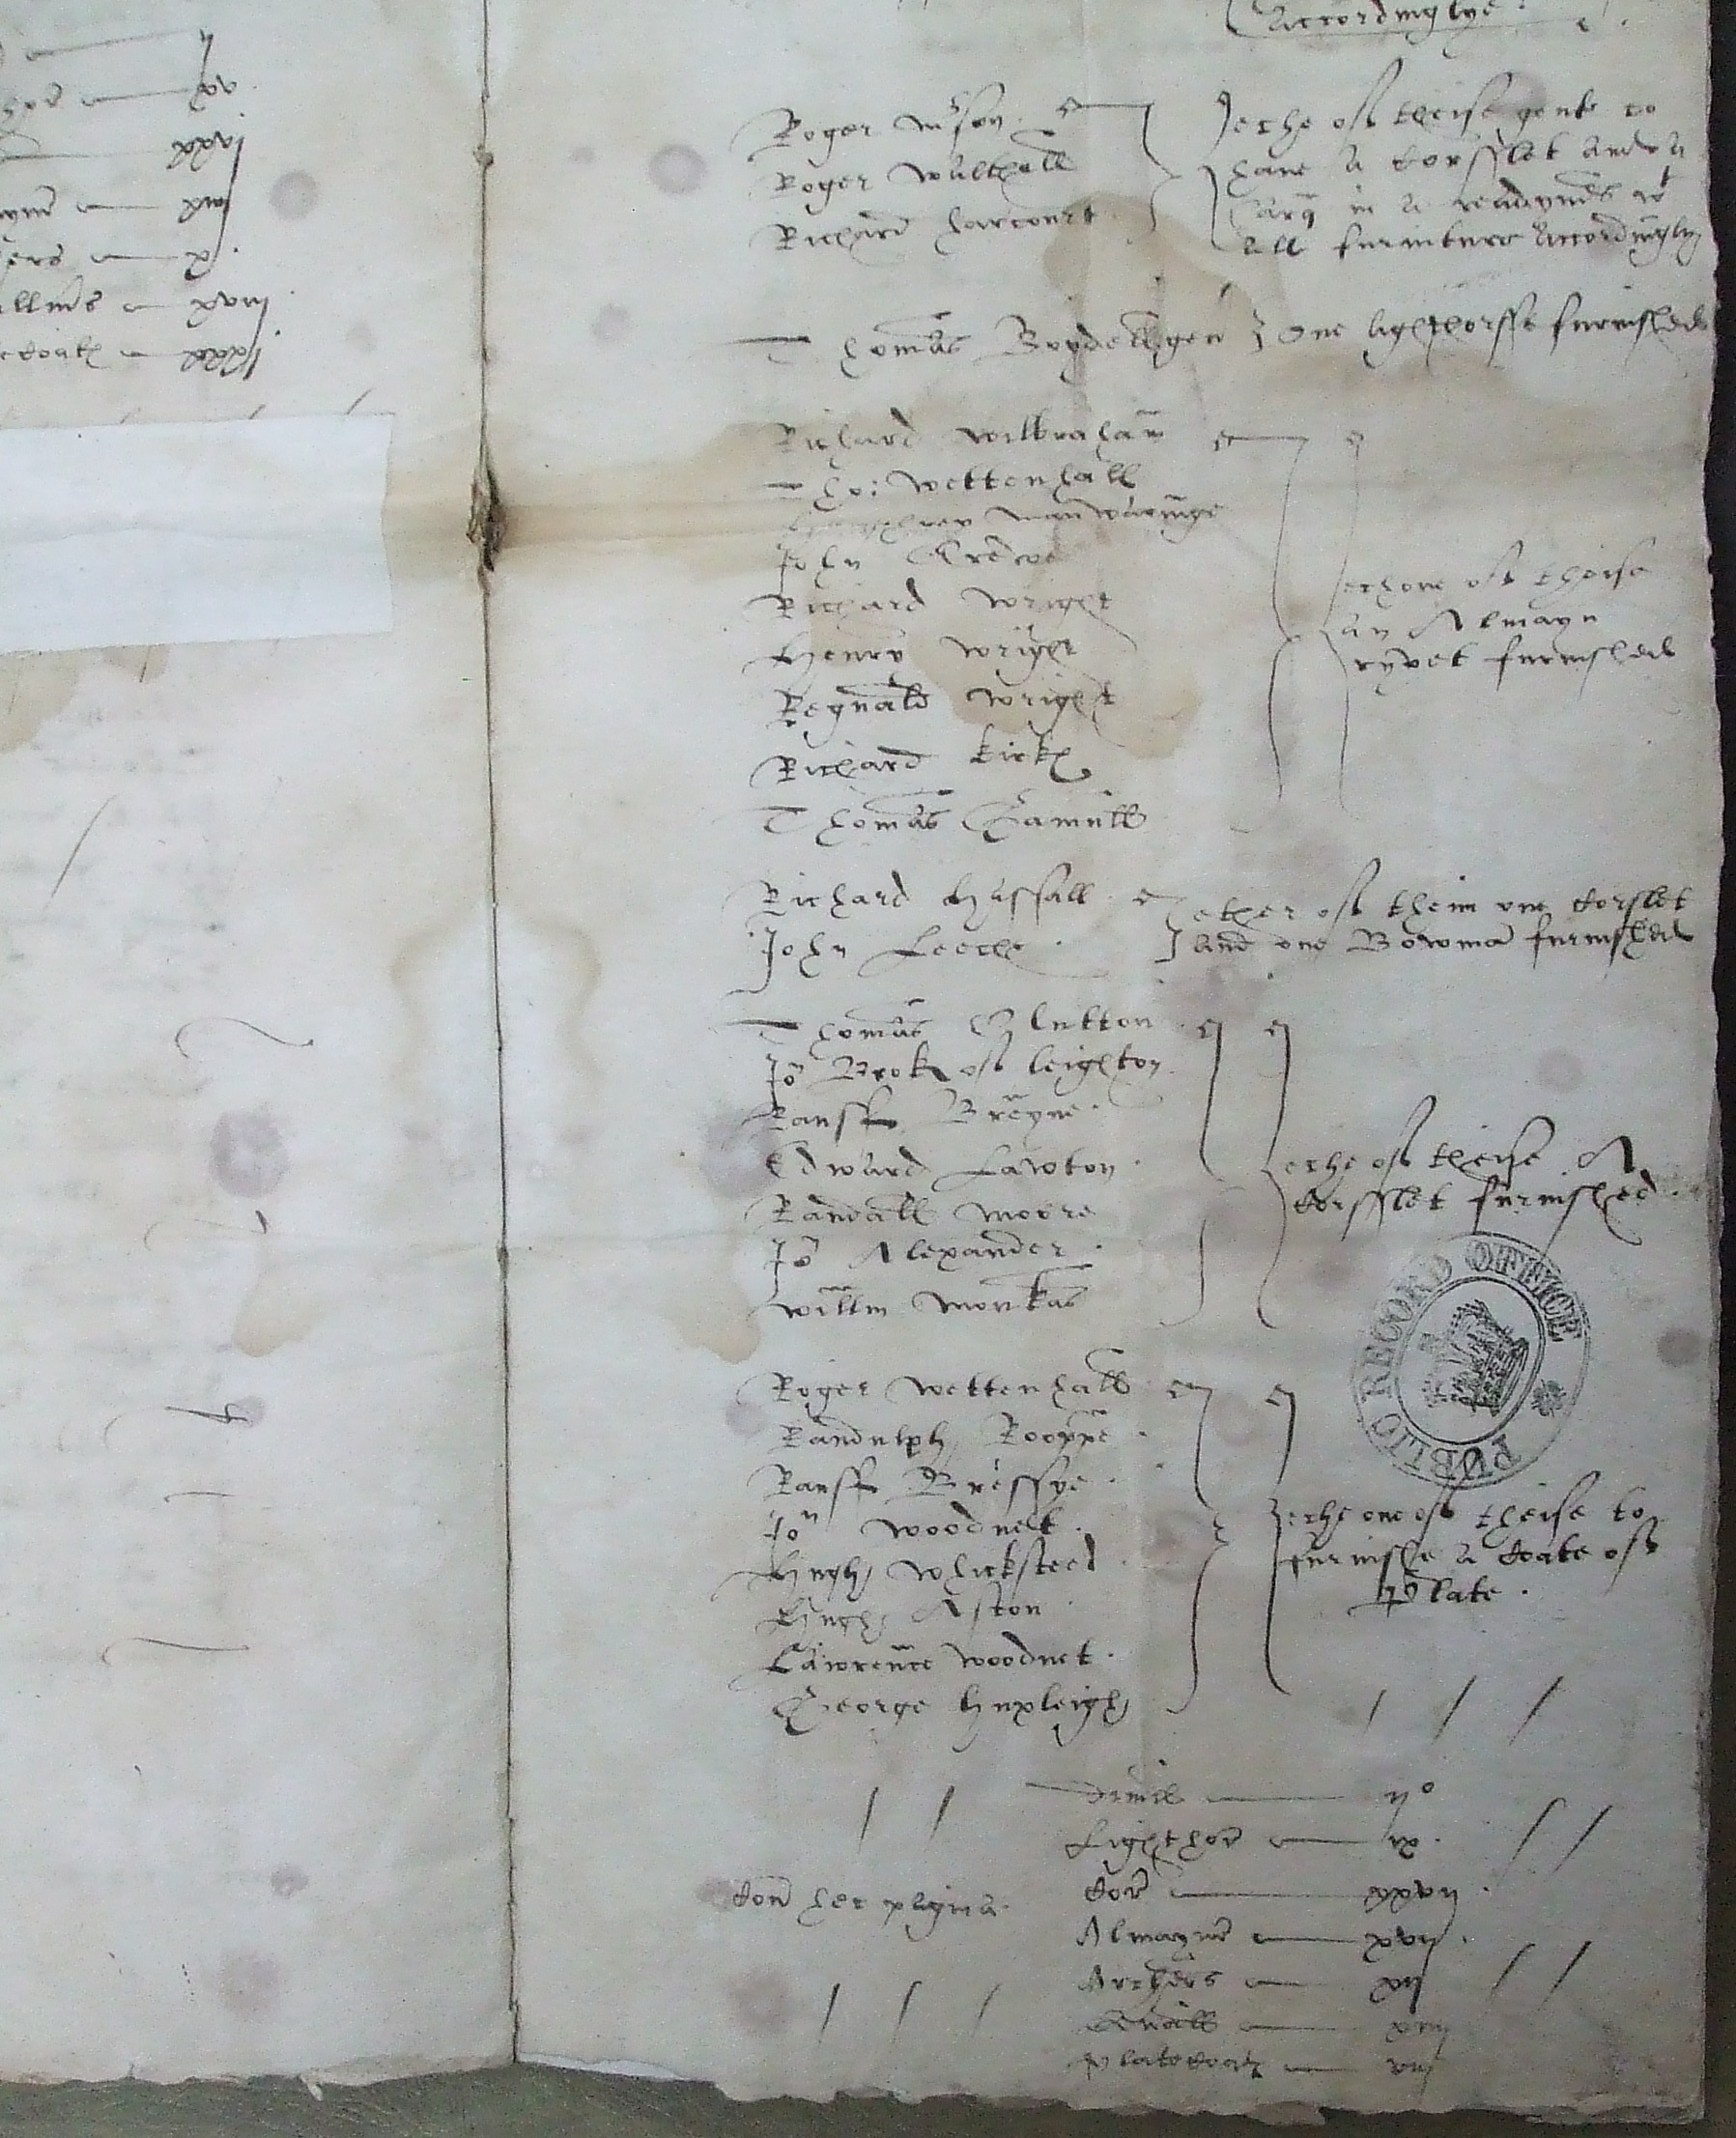 Accordinglye
Roger mrson
Roger Walthall
Richard harcourt
eche off theise gent to
have a Corsslet and a
in a readynes wt
all furniture Accordingly
Thomas Boydell gen } One lighthorsse furnished
Richard Wilbraham
Tho: Wettenhall
manwaringe
John Crewe
Richard Wright
Henry Wright
Regnald Wright
Richard kirk
Thomas Gamull
echone off theise
an Almayn
ryvet furnished
Richard Hassall
John Leeche
ether off theim one Corslet
and one Bowma furnished
Thomas Clutton
Jo Brok off leighton
Rauff Breyne
Edward Lawton
Randall moore
Jo Alexander
Willm monkas
eche off theise A
Corsslet furnished
Roger Wettenhall
Randulph Rooppe
Rauff Bressye
Jon Woodnet
Hugh Whicksteed
Hugh Aston
Lawrence Woodnet
George huxleigh
eche one off theise to
furnishe a Coate off
Plate
PUBLIC RECORD OFFICE
Dimil ijo
Lighthor ix
Cor xxvij
Almayne xvij
Archers xij
Platecoat viij
Con hec pagina